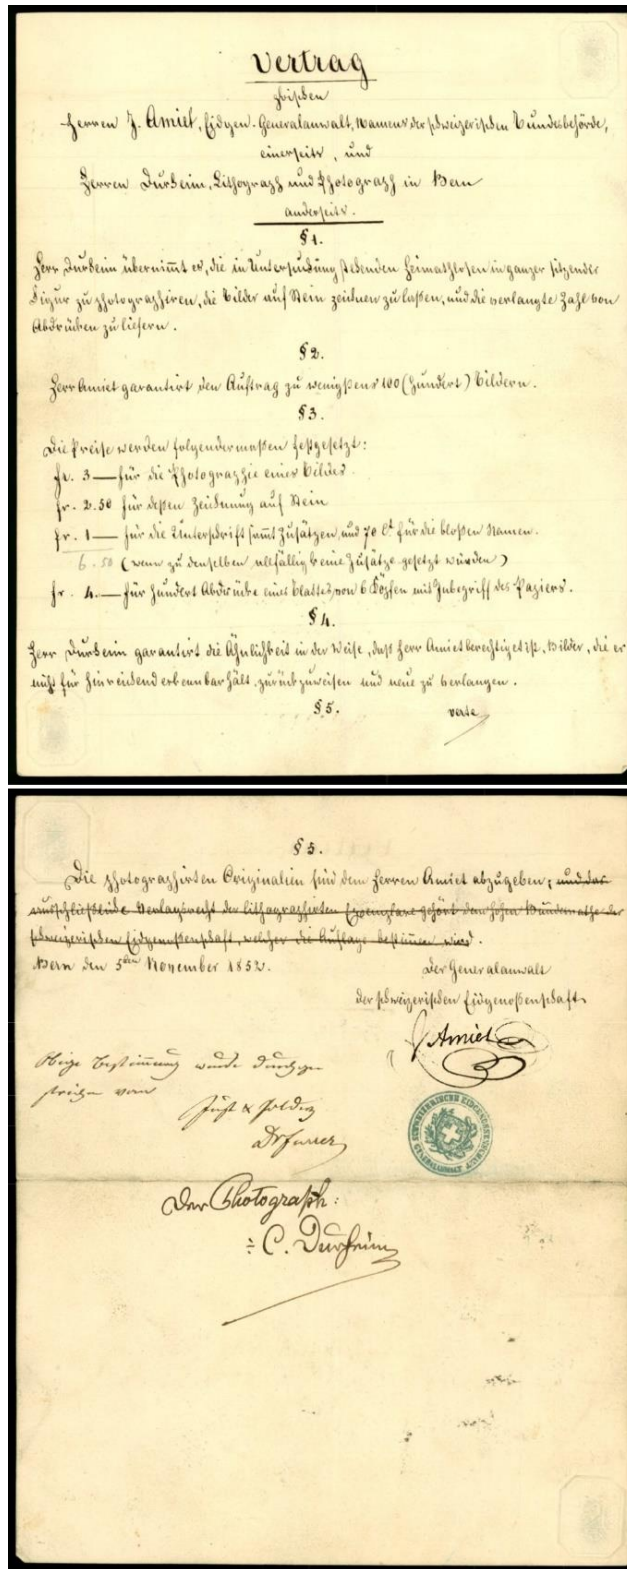 Vertrag
zwischen
Herren J. Amiet, Eidgen. Generalanwalt, Namens der schweizerischen Bundesbehörde,
einerseits, und
Herren Durheim, Lithograph und Photograph in Bern
anderseits.
§ 1.
Herr Durheim übernimmt es, die in Untersuchung stehenden Heimathlosen in ganzer sitzender
Figur zu photographiren, die Bilder auf Stein zeichnen zu laßen, und die verlangte Zahl von
Abdrücken zu liefern.
§ 2.
Herr Amiet garantirt den Auftrag zu wenigstens 100 (hundert) Bildern.
§ 3.
Die Preise werden folgendermaßen festgesetzt:
Fr. 3 — für die Photographie eines Bildes.
Fr. 2.50 für deßen Zeichnung auf Stein
Fr. 1 — für die Unterschrift sammt Zusätzen, und 70 Ct für die bloßen Namen.
6.50 (wenn zu denselben allfällig keine Zusätze gesetzt würden)
Fr. 4. — für hundert Abdrücke eines Blattes von 6 Köpfen mit Inbegriff des Papiers.
§ 4.
Herr Durheim garantirt die Ähnlichkeit in der Weise, daß Herr Amiet berechtiget ist, Bilder, die er
nicht für hinreichend erkennbar hält, zurückzuweisen und neue zu verlangen.
§ 5. verte
§ 5.
Die photographirten Originalien sind dem Herren Amiet abzugeben; und das
ausschließende Verlagsrecht der lithographirten Exemplare gehört dem hohen Bundesrathe der
schweizerischen Eidgenoßenschaft, welcher die Auflage bestimmen wird.
Bern den 5ten November 1852.
Der Generalanwalt
der schweizerischen Eidgenoßenschaft
Amiet
Obige Bestimmung wurde durchge
strichen vom
Just & Polidep
Dr Furrer
SCHWEIZERISCHE EIDGENOSSENSCHAFT
GENERALANWALT
Der Photograph:
C. Durheim